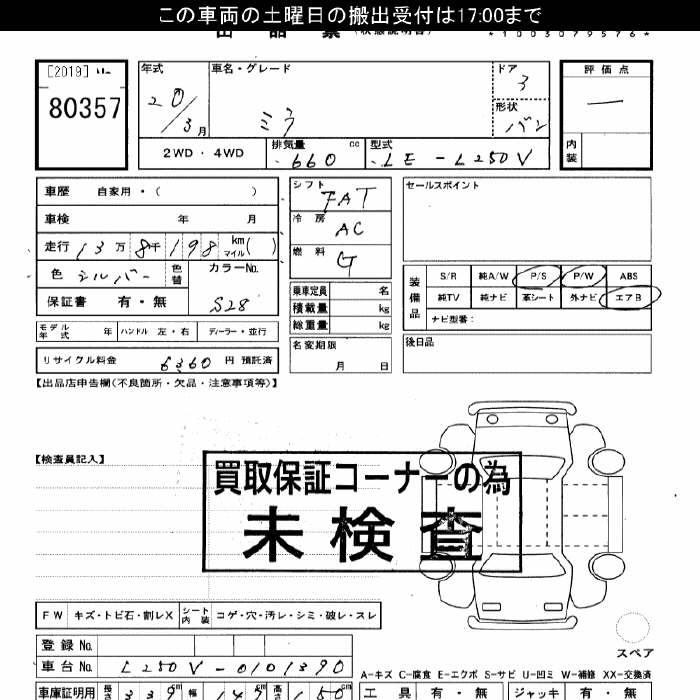 この車両の土曜日の搬出受付は17:00まで
出品票 (状態説明書) *1003079576*
[2019]
80357
年式 20/3月
車名・グレード ミラ
ドア 3
形状 バン
評価点 —
内装
2WD ・ 4WD
排気量 660 cc
型式 LE-L250V
車歴 自家用 ・ ( )
車検 年 月
走行 13万8千198 km マイル( )
色 シルバー 色替 カラーNo. S28
保証書 有・無
モデル年式 年 ハンドル 左・右 ディーラー・並行
リサイクル料金 6360 円 預託済
シフト FAT
冷房 AC
燃料 G
乗車定員 名
積載量 kg
総重量 kg
名変期限 月 日
セールスポイント
装備品 S/R 純A/W P/S P/W ABS
純TV 純ナビ 革シート 外ナビ エアB
ナビ型番:
後日品
【出品店申告欄(不良箇所・欠品・注意事項等)】
【検査員記入】
買取保証コーナーの為
未検査
FW キズ・トビ石・割レX シート内装 コゲ・穴・汚レ・シミ・破レ・スレ
登録No.
車台No. L250V-0101390
スペア
A-キズ C-腐食 E-エクボ S-サビ U-凹ミ W-補修 XX-交換済
車庫証明用 長さ 339cm 幅 147cm 高さ 150cm
工具 有・無 ジャッキ 有・無